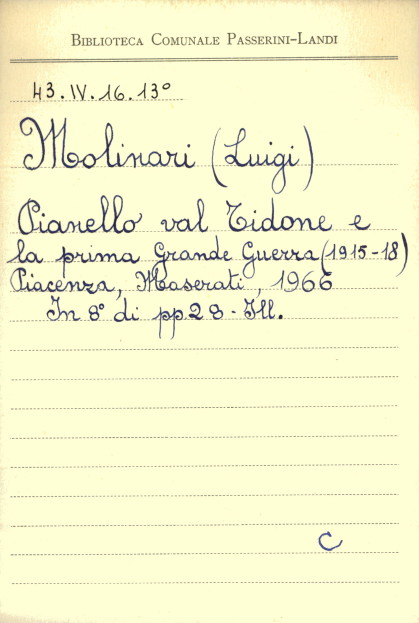 BIBLIOTECA COMUNALE PASSERINI-LANDI
43.IV.16.13°
Molinari (Luigi)
Pianello val Tidone e
la prima Grande Guerra (1915-18)
Piacenza, Maserati, 1966
In 8° di pp 28 - Ill.
C